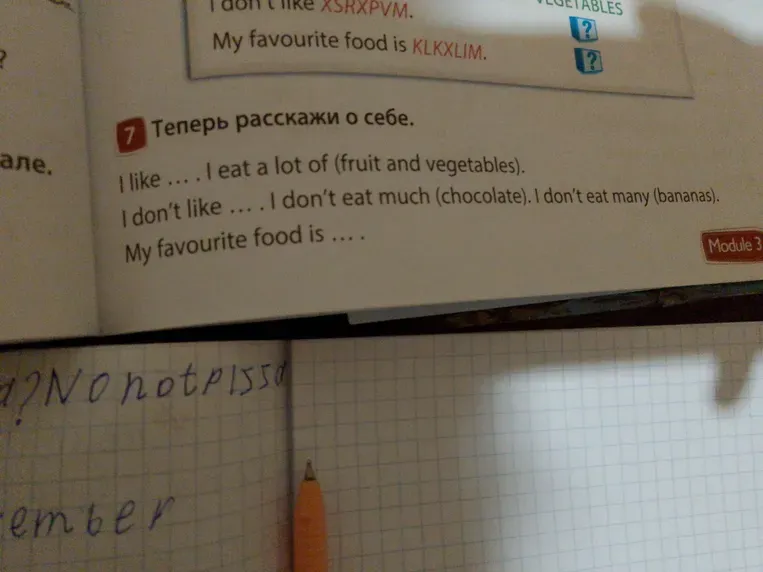 I don't like XSRXPVM.
VEGETABLES
?
My favourite food is KLKXLIM.
?
?
7 Теперь расскажи о себе.
але.
I like ... . I eat a lot of (fruit and vegetables).
I don't like ... . I don't eat much (chocolate). I don't eat many (bananas).
My favourite food is ... .
Module 3
?No not pissa
ember